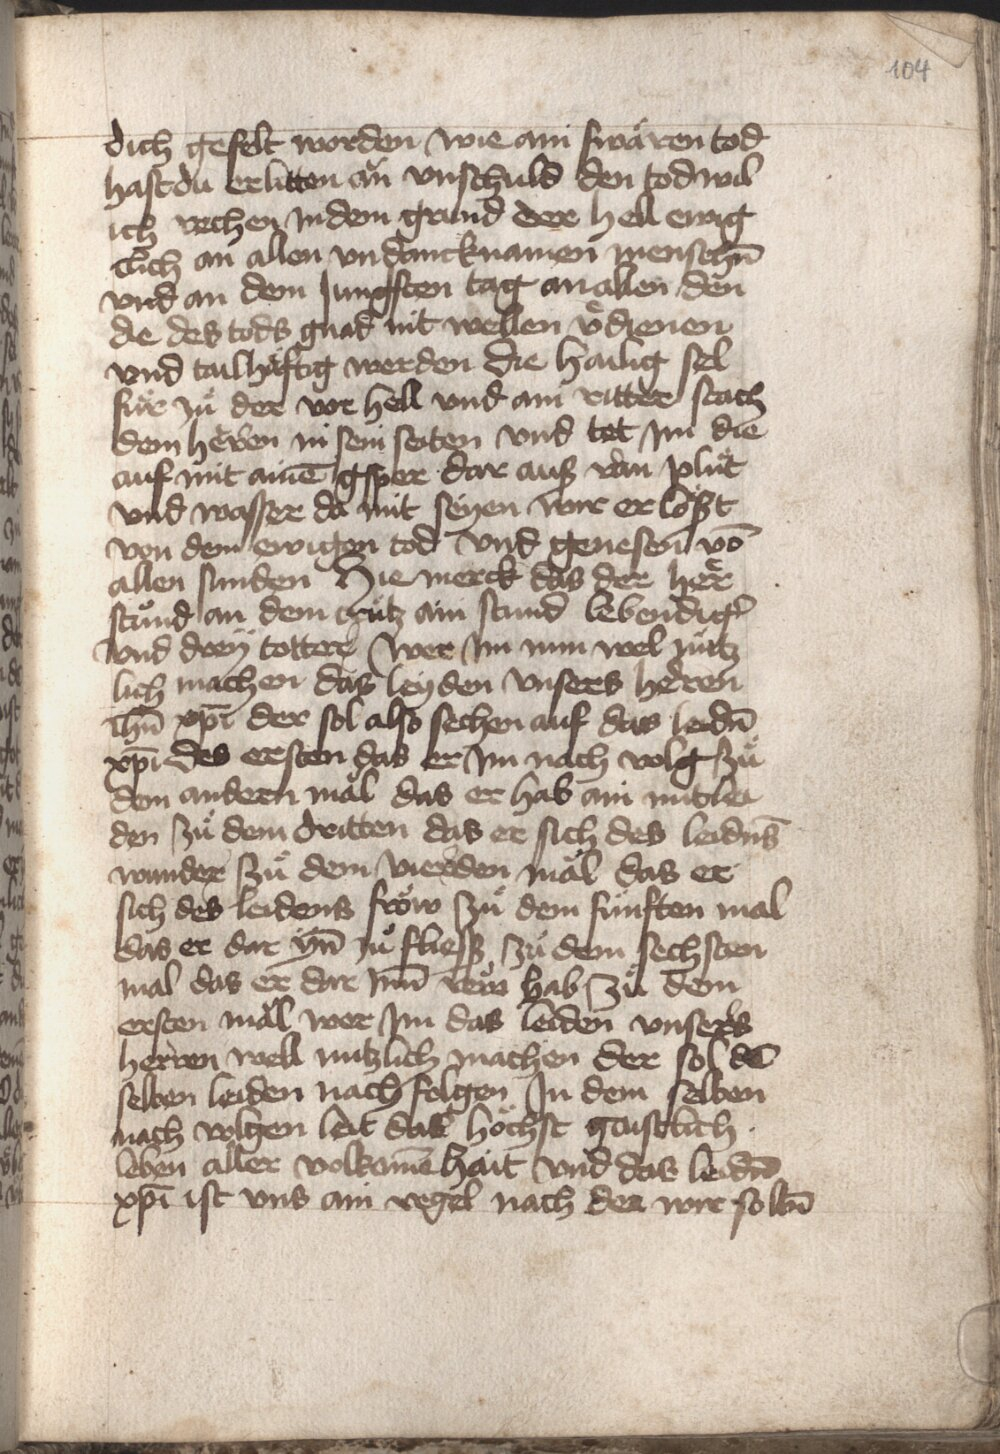 104
dich geselt worden wie ain swären tod
hast du erlitten än vnschuld den tod wil
ich rechen In dem grund der hell ewig
clich an allen vndancknamen menschn̄
vnd an dem Jungsten tag an allen den
die des tods gnad nit wellen v̈dienen
vnd tailhäftig werden die hailig sel
fůr zů der vor hell vnd ain ritter stach
dem herren in sein seiten vnd tet Im die
auf mit ainē gsper dar auß ran plůt
vnd wasser da mit seyen wir erlößt
von dem ewigen tod vnd genesen vō
allen sunden Hie merck das der her
stůnd an dem crütz ain stund lebendigr̄
vnd dreÿ totter Wer Im nun wel nütz
lich machen das leyden vnsers herren
ihū xp̄i der sol also sechen auf das leidn̄
xp̄i des ersten das er Im nach volg zů
dem andern mäl das er hab ain mitlei
den zů dem dritten das er sich des leidns̄
wunder zů dem vierden mäl das er
sich des leidens fröw zů dem fünften mal
das er dar ÿn̄ zů fließ zů dem sechsten
mal das er dar Inn̄ rew hab zů dem
ersten mäl wer Im das leiden vnsers
herren well nutzlich machen der sol dē
selben leiden nach folgen In dem selben
nach volgen leit das höchst gaistlich
leben aller volkamē hait vnd das leidn̄
xp̄i ist vns ain regel nach der wir solln̄